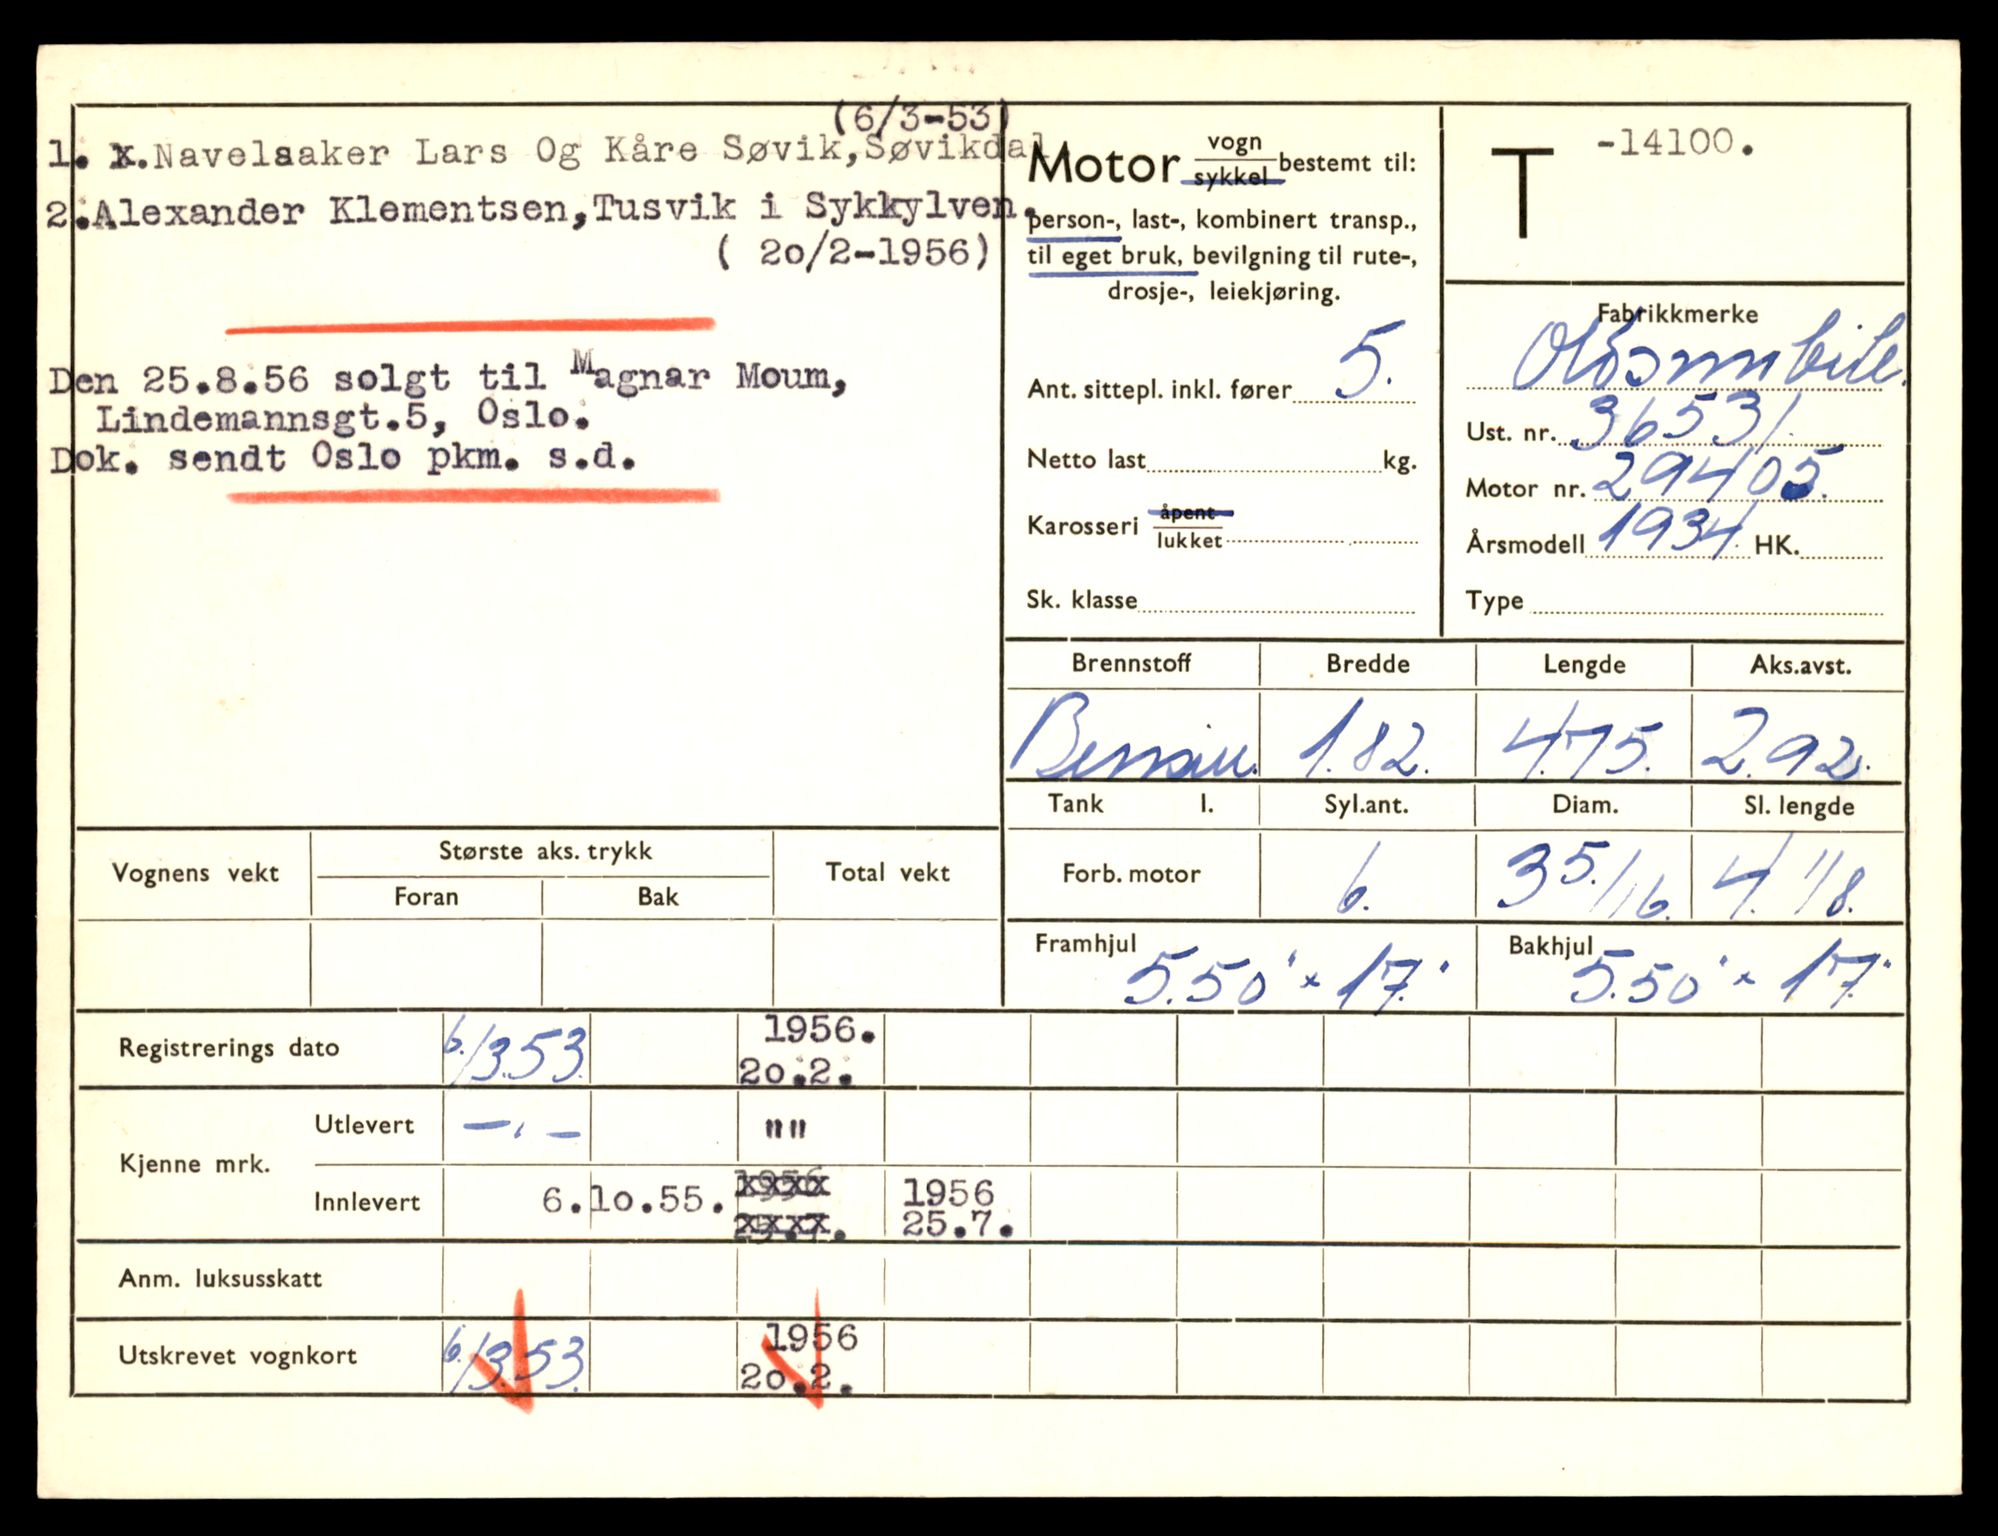 (6/3-53)
1. x.Navelsaker Lars Og Kåre Søvik,Søvikdal
2.Alexander Klementsen,Tusvik i Sykkylven.
( 20/2-1956)
Den 25.8.56 solgt til Magnar Moum,
Lindemannsgt.5, Oslo.
Dok. sendt Oslo pkm. s.d.
Motor vogn sykkel bestemt til:
person-, last-, kombinert transp.,
til eget bruk, bevilgning til rute-,
drosje-, leiekjøring.
Ant. sittepl. inkl. fører 5.
Netto last kg.
Karosseri åpent lukket
Sk. klasse
T -14100.
Fabrikkmerke
Oldsmobile.
Ust. nr. 36531.
Motor nr. 29405.
Årsmodell 1934. HK.
Type
Brennstoff Bredde Lengde Aks.avst.
Bensin. 1.82. 4.75. 2.92.
Tank l. Syl.ant. Diam. Sl. lengde
Forb. motor 6. 3 5./16. 4. 1/8.
Framhjul 5.50" x 17." Bakhjul 5.50" x 17."
Vognens vekt Største aks. trykk Total vekt
Foran Bak
Registrerings dato 6./3.53. 1956. 20.2.
Kjenne mrk. Utlevert —.— ""
Innlevert 6.10.55. 1956 25.7. 1956 25.7.
Anm. luksusskatt
Utskrevet vognkort 6./3.53. 1956 20.2.